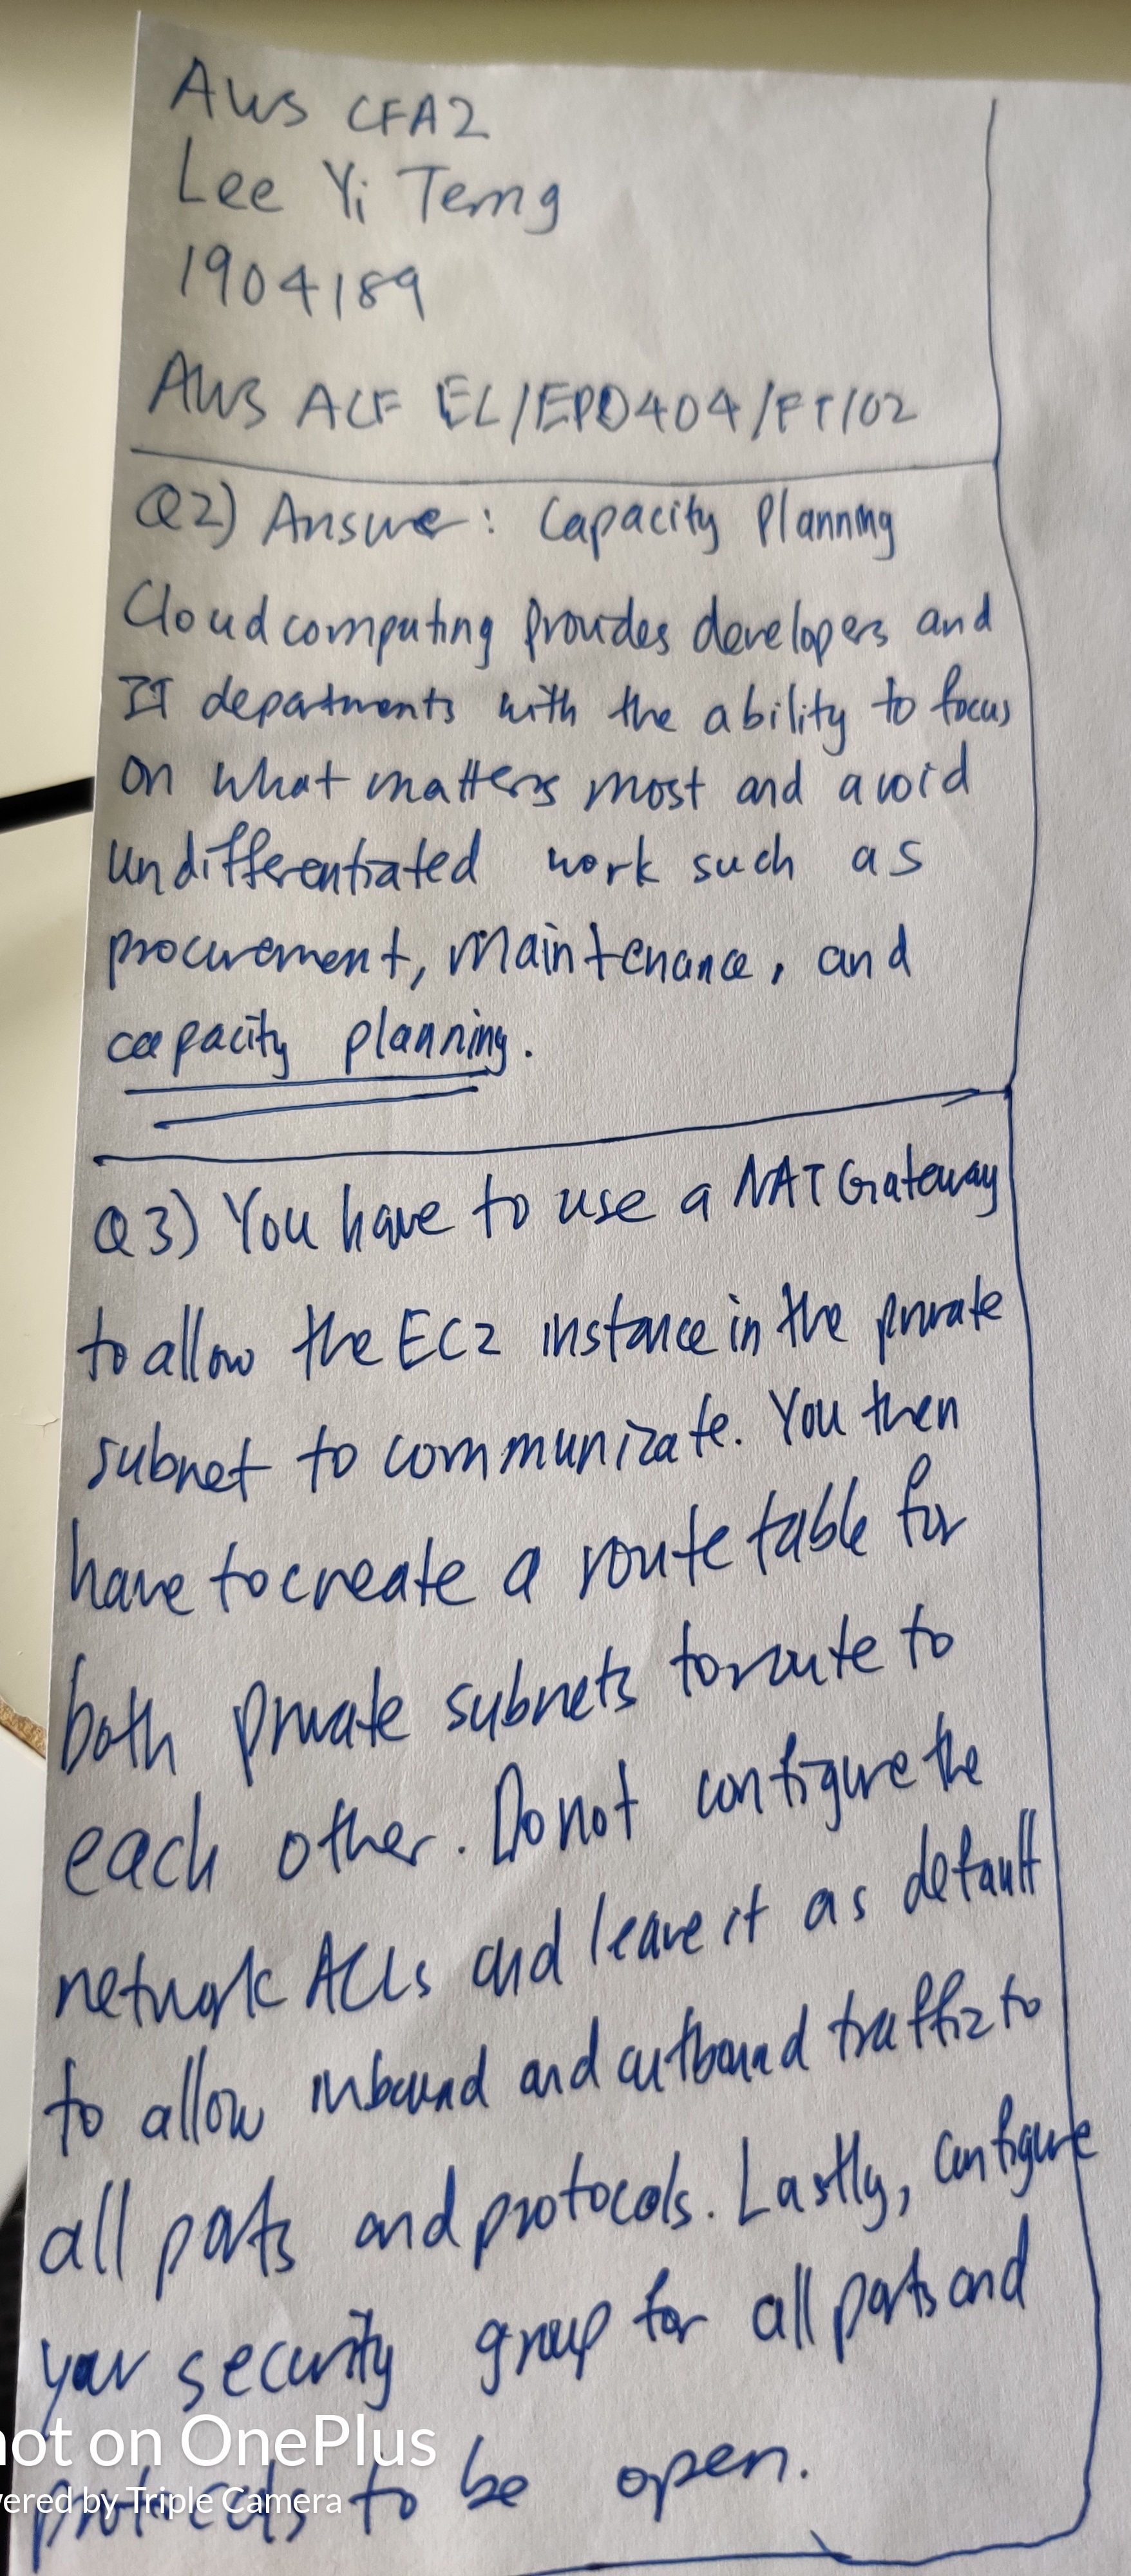 AWS CFA2
Lee Yi Terng
1904189
AWS ACF EL/EPD404/FT/02
Q2) Answer: Capacity Planning
Cloud computing provides developers and
IT departments with the ability to focus
on what matters most and avoid
undifferentiated work such as
procurement, maintenance, and
capacity planning.
Q3) You have to use a NAT Gateway
to allow the EC2 instance in the private
subnet to communicate. You then
have to create a route table for
both private subnets to route to
each other. Do not configure the
network ACLs and leave it as default
to allow inbound and outbound traffic to
all ports and protocols. Lastly, configure
your security group for all ports and
protocols to be open.
hot on OnePlus
vered by Triple Camera